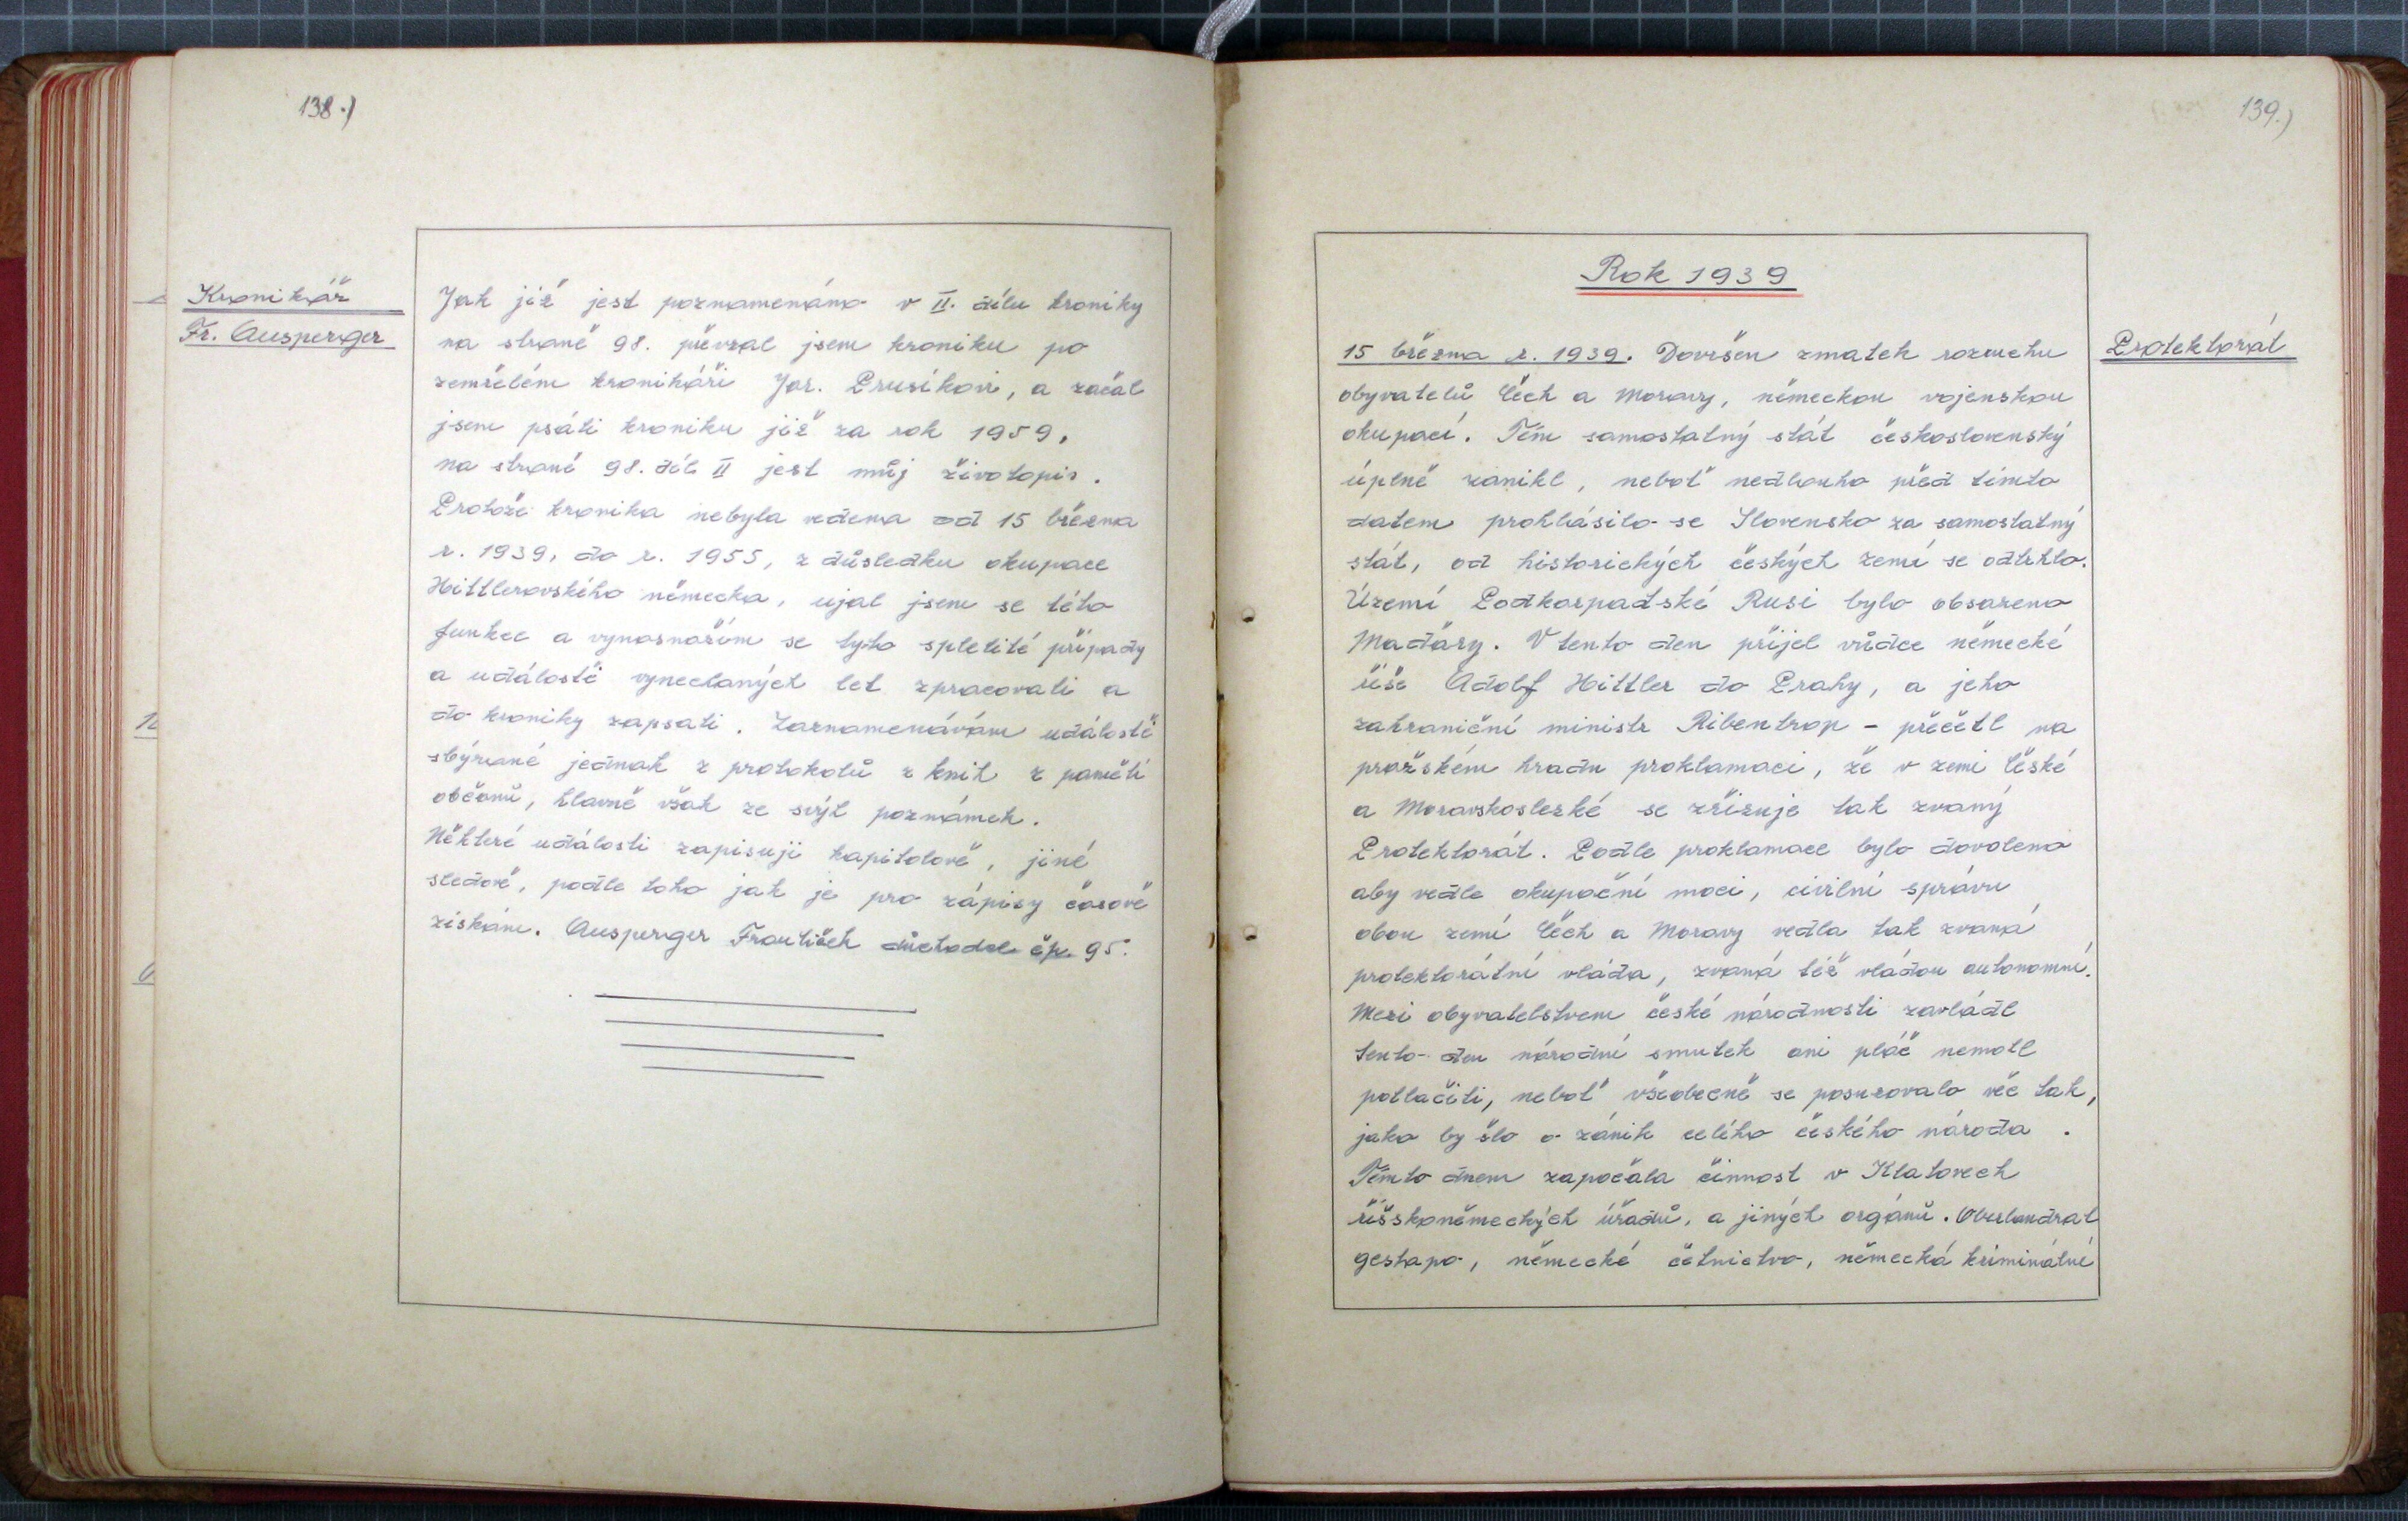 138.)
Kronikář
Fr. Ausperger
Jak již jest poznamenáno v II. dílu kroniky
na straně 98. převzal jsem kroniku po
zemřelém kronikáři Jar. Prusíkovi, a začal
jsem psáti kroniku již za rok 1959,
na straně 98. díl II jest můj životopis.
Protože kronika nebyla vedena od 15 března
r. 1939, do r. 1955, z důsledku okupace
Hittlerovského německa, ujal jsem se této
funkce a vynasnažím se tyto spletité případy
a událostě vynechaných let zpracovati a
do kroniky zapsati. Zaznamenávám událostě
sbýrané jednak z protokolů z knih z pamětí
občanů, hlavně však ze svých poznámek.
Některé události zapisuji kapitolově, jiné
sledově, podle toho jak je pro zápisy časově
získám. Ausperger František čp. 95.
139.)
Rok 1939
Protektorát
15 března r. 1939. Dovršen zmatek rozruchu
obyvatelů Čech a Moravy, německou vojenskou
okupací. Tím samostatný stát československý
úplně zanikl, neboť nedlouho před tímto
datem prohlásilo se Slovensko za samostatný
stát, od historických českých zemí se odtrhlo.
Území Podkarpadské Rusi bylo obsazeno
Maďary. V tento den přijel vůdce německé
říše Adolf Hittler do Prahy, a jeho
zahraniční ministr Ribentrop - přečětl na
pražském hradu proklamaci, že v zemi České
a Moravskoslezké se zřizuje tak zvaný
Protektorát. Podle proklamace bylo dovoleno
aby vedle okupační moci, civilní správu
obou zemí Čech a Moravy vedla tak zvaná
protektorátní vláda, zvaná též vládou autonomní.
Mezi obyvatelstvem české národnosti zavládl
tento den národní smutek ani pláč nemohl
potlačiti, neboť všeobecně se posuzovalo věc tak,
jako by šlo o zánik celého českého národa.
Tímto dnem započala činnost v Klatovech
říšskoněmeckých úřadů, a jiných orgánů. Oberlandrat
gestapo, německé četnictvo, německá kriminální